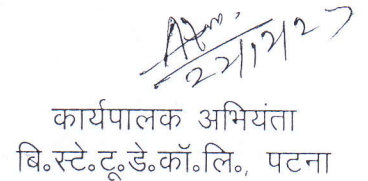 कार्यपालक अभियंता
बि॰स्टे॰टू॰डे॰कॉ॰लि॰, पटना